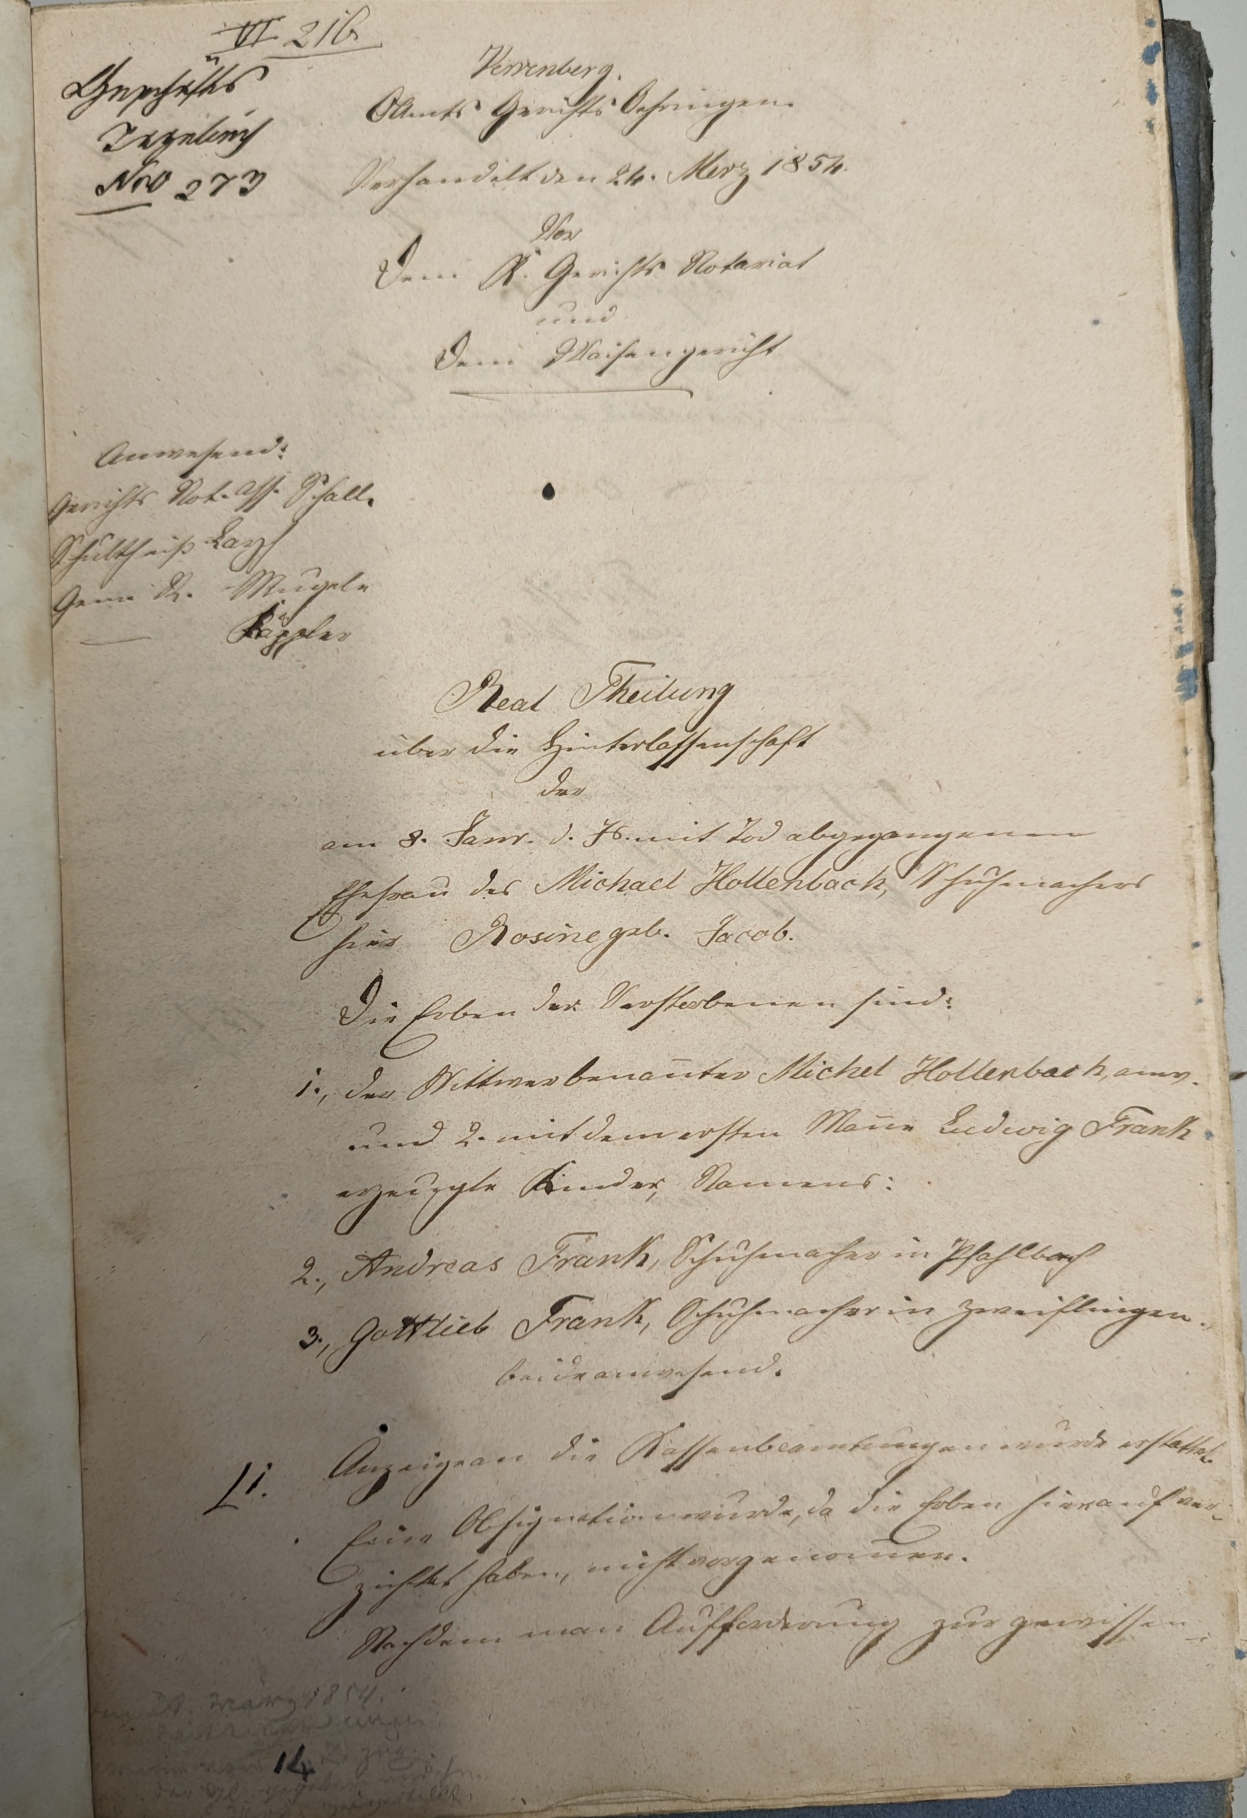 VI 21b.
Geschäfts
Tagebuch
Nro 273
Verrenberg.
OAmts Gerichts Oehringen.
Verhandelt den 24. Merz 1854.
Vor
dem K. Gerichts Notariat
und
dem Waisengericht
Anwesend:
Gerichts Not. Ass. Schall.
Schultheiß
Gem. R. Mugele
Käppler
Real Theilung
über die Hinterlassenschaft
der
am 8. Janr. d. Js. mit Tod abgegangenen
Ehefrau des Michael Hollenbach, Schuhmachers
hier Rosine geb. Jacob.
Die Erben der Verstorbenen sind:
1., der Wittwer benañter Michel Hollenbach, anw.
und 2. mit dem ersten Mañe Ludwig Frank
erzeugte Kinder, Namens:
2., Andreas Frank, Schuhmacher in Pfahlbach
3., Gottlieb Frank, Schuhmacher in Zweiflingen.
beide anwesend.
§ 1.
Anzeige an die Kassenbeamtungen wurde erstattet.
Eine Obsignation wurde, da die Erben hierauf ver-
zichtet haben, nicht vorgenomen.
Nachdem man Aufforderung zur gewissen-
März 1854.
14